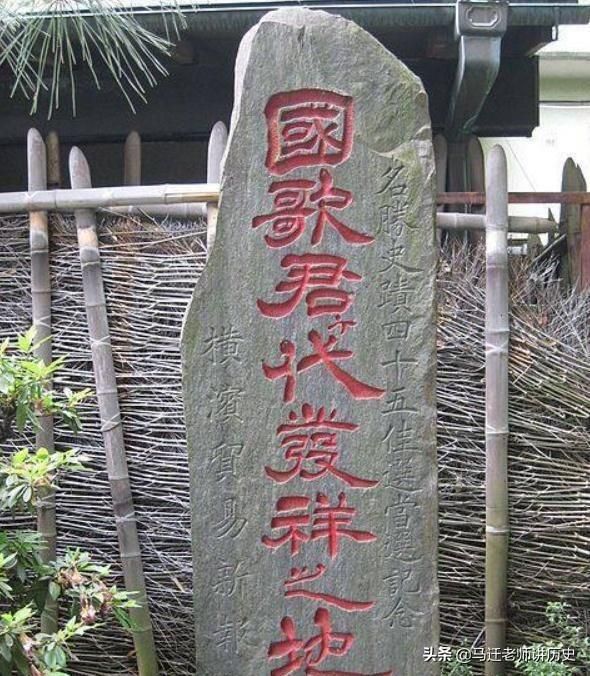 名勝史蹟四十五佳選當選記念
國歌君が代發祥之地
横濱貿易新報
头条 @马迁老师讲历史